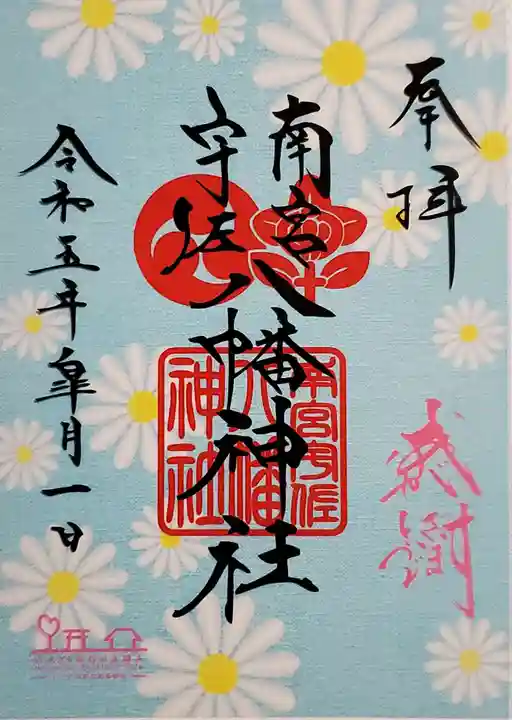 奉拝
感謝
南宮
宇佐
八幡神社
南宮宇佐
八幡
神社
令和五年皐月一日